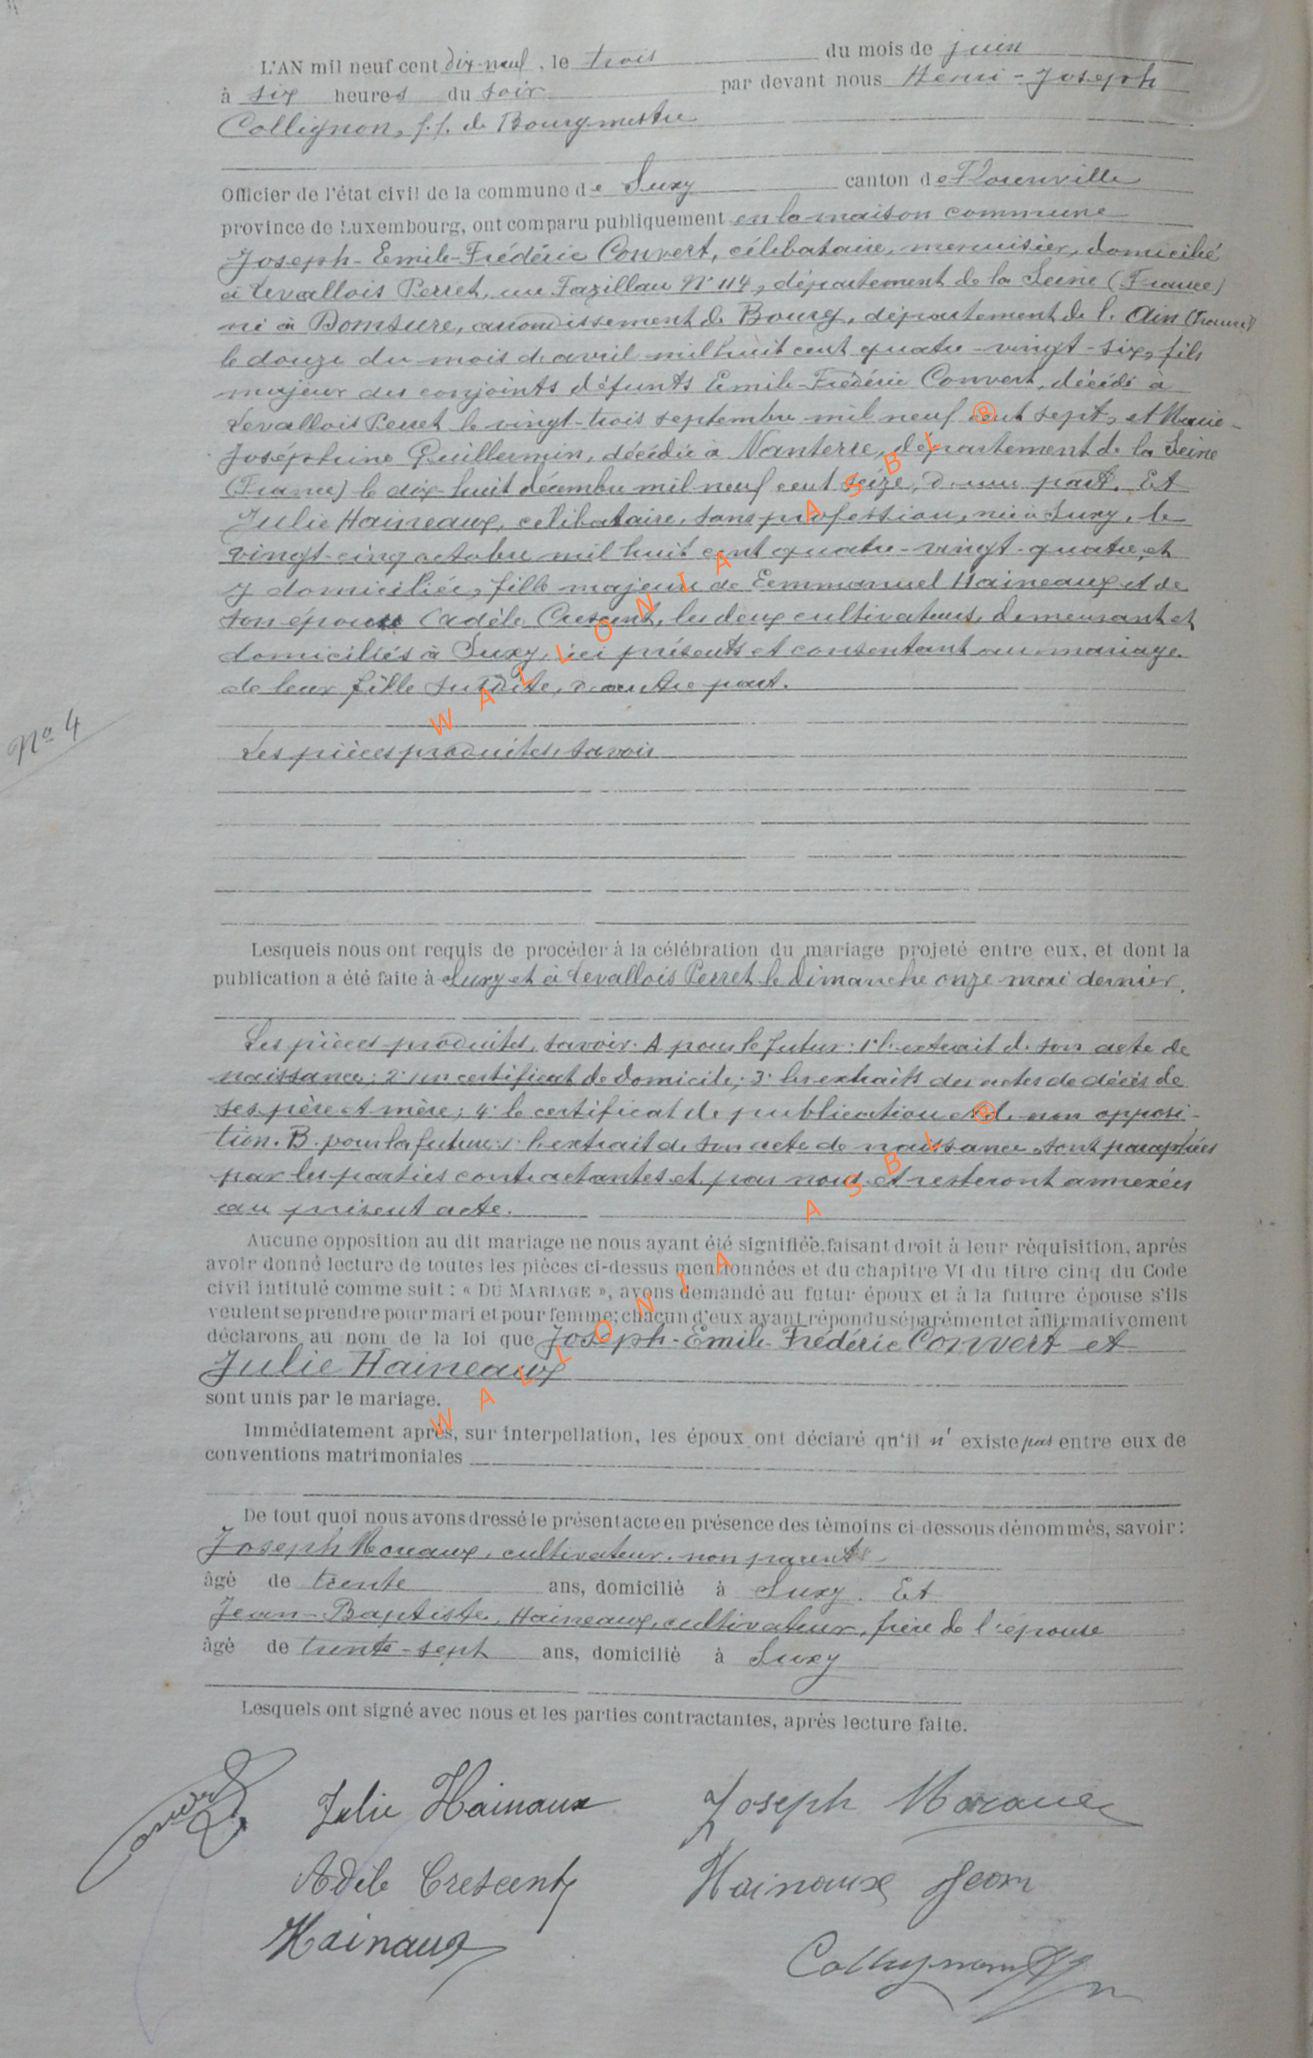 L'AN mil neuf cent dix-neuf, le trois du mois de juin
à six heures du soir par devant nous Henri-Joseph
Collignon, f.f. de Bourgmestre
Officier de l'état civil de la commune de Suxy canton de Florenville
province de Luxembourg, ont comparu publiquement en la maison commune
Joseph-Emile-Frédéric Convert, célibataire, menuisier, domicilié
à Levallois Perret, rue Fazillau N° 114, département de la Seine (France)
né à Domsure, arrondissement de Bourg, département de l'Ain (France)
le douze du mois de avril mil huit cent quatre-vingt-six, fils
majeur des conjoints défunts Emile-Frédéric Convert, décédé à
Levallois Perret le vingt-trois septembre mil neuf cent sept, et Marie-
Joséphine Guillermin, décédée à Nanterre, département de la Seine
(France) le dix-huit décembre mil neuf cent seize, d'une part. Et
Julie Haineaux, célibataire, sans profession, née à Suxy, le
vingt-cinq octobre mil huit cent quatre-vingt-quatre, et
y domiciliée, fille majeure de Eemmanuel Haineaux et de
son épouse Adèle Crescent, les deux cultivateurs, demeurant et
domiciliés à Suxy, ici présents et consentant au mariage
de leur fille susdite, d'autre part.
N° 4
Les pièces produites, savoir
Lesquels nous ont requis de procéder à la célébration du mariage projeté entre eux, et dont la
publication a été faite à Suxy et à Levallois Perret le dimanche onze mai dernier.
Les pièces produites, savoir. A pour le futur: 1° l'extrait de son acte de
naissance; 2° un certificat de domicile; 3° les extraits des actes de décès de
ses père et mère; 4° le certificat de publication et de non opposi-
tion. B. pour la future: 1° l'extrait de son acte de naissance, sont paraphées
par les parties contractantes et par nous et resteront annexées
au présent acte.
Aucune opposition au dit mariage ne nous ayant été signifiée, faisant droit à leur réquisition, après
avoir donné lecture de toutes les pièces ci-dessus mentionnées et du chapitre VI du titre cinq du Code
civil intitulé comme suit : « DU MARIAGE », avons demandé au futur époux et à la future épouse s'ils
veulent se prendre pour mari et pour femme; chacun d'eux ayant répondu séparément et affirmativement
déclarons au nom de la loi que Joseph-Emile-Frédéric Convert et
Julie Haineaux
sont unis par le mariage.
Immédiatement après, sur interpellation, les époux ont déclaré qu'il n'existe pas entre eux de
conventions matrimoniales
De tout quoi nous avons dressé le présent acte en présence des témoins ci-dessous dénommés, savoir :
Joseph Moraux, cultivateur, non parent
âgé de trente ans, domicilié à Suxy. Et
Jean-Baptiste Haineaux, cultivateur, frère de l'épouse
âgé de trente-sept ans, domicilié à Suxy
Lesquels ont signé avec nous et les parties contractantes, après lecture faite.
Convert Julie Hainaux Joseph Moraux
Adèle Crescent Hainaux Jean
Hainaux Collignon
WALLONIA ASBL ®
WALLONIA ASBL ®